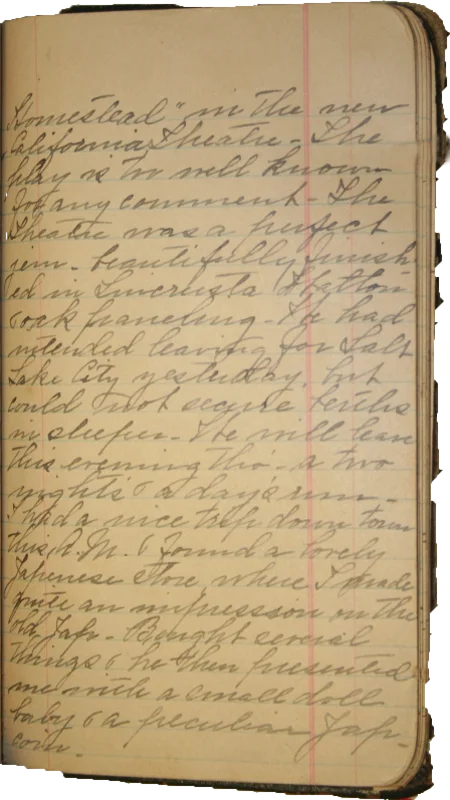 Homestead" in the new
California Theatre - The
play is too well known
for any comment - The
Theatre was a perfect
jem - beautifully finish
ed in Lincrusta Walton
& oak paneling - We had
intended leaving for Salt
Lake City yesterday, but
could not secure berths
in sleeper - We will leave
this evening tho' - a two
nights & a day's run -
I had a nice trip down town
this A.M. & found a lovely
Japenese store, where I made
quite an impression on the
old Jap - Bought several
things & he then presented
me with a small doll
baby & a peculiar Jap -
coin -